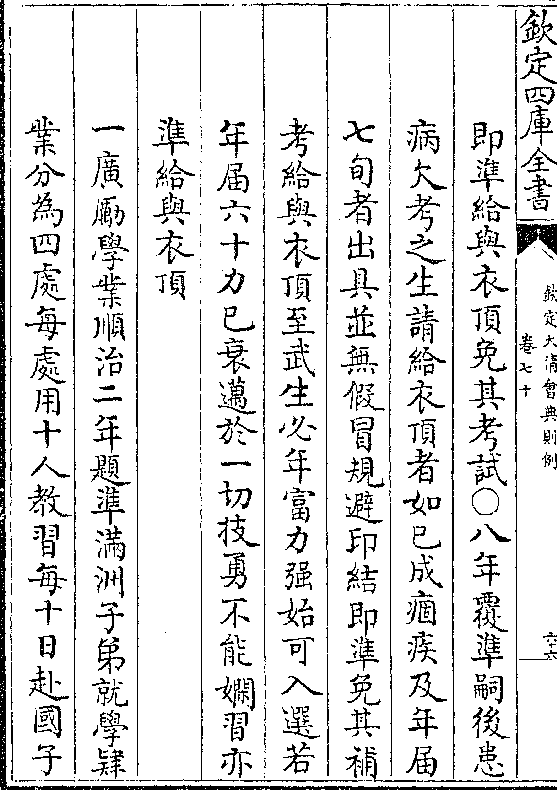 欽定四庫全書
欽定大清會典則例
卷七十
六十六
即準給與衣頂免其考試〇八年覆準嗣後患
病欠考之生請給衣頂者如已成痼疾及年届
七旬者出具並無假冒規避印結即準免其補
考給與衣頂至武生必年富力强始可入選若
年届六十力已衰邁於一切技勇不能嫻習亦
準給與衣頂
一廣勵學業順治二年題準滿洲子弟就學肄
業分為四處每處用十人教習每十日赴國子